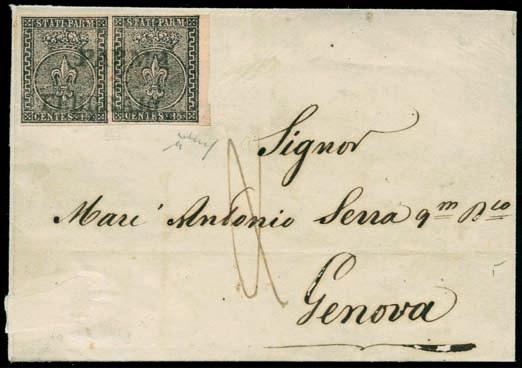 STATI PARM. STATI PARM.
CENTES. 15 CENTES. 15
Signor
Marc' Antonio Serra qm Bco
Genova